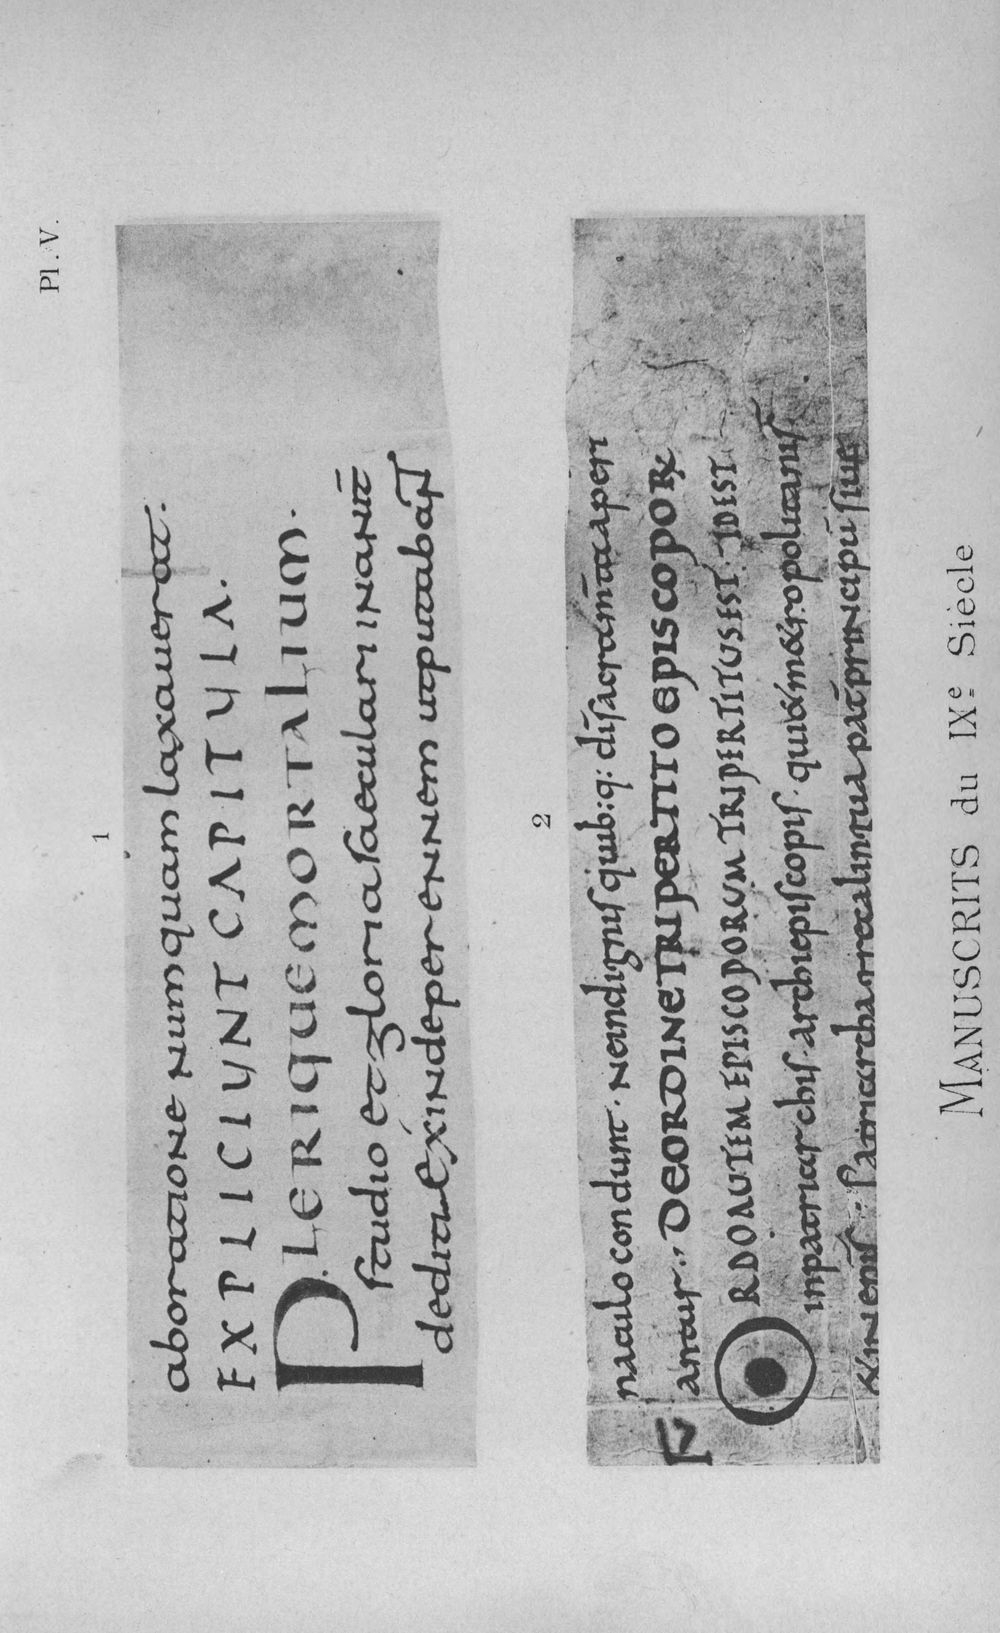 Pl. V.
1
aboratione numquam laxauerat.
EXPLICIUNT CAPITULA.
PLERIQUE MORTALIUM.
studio et gloria saeculari inanit̄
dediti exinde perennem ut putabant
2
naculo condunt · Ne indignis quib:q: dīsacram̄ta aperi
antur ·,, DE ORDINE TRIPERTITO EPISCOPOR
ORDO AUTEM EPISCOPORUM TRIPERTITUS EST. IDEST.
inpatriarchis · archiepiscopis · qui & m&ropolitanis̄
patriarcha grecalingua pat̄ principū siue
MANUSCRITS du IXe Siècle